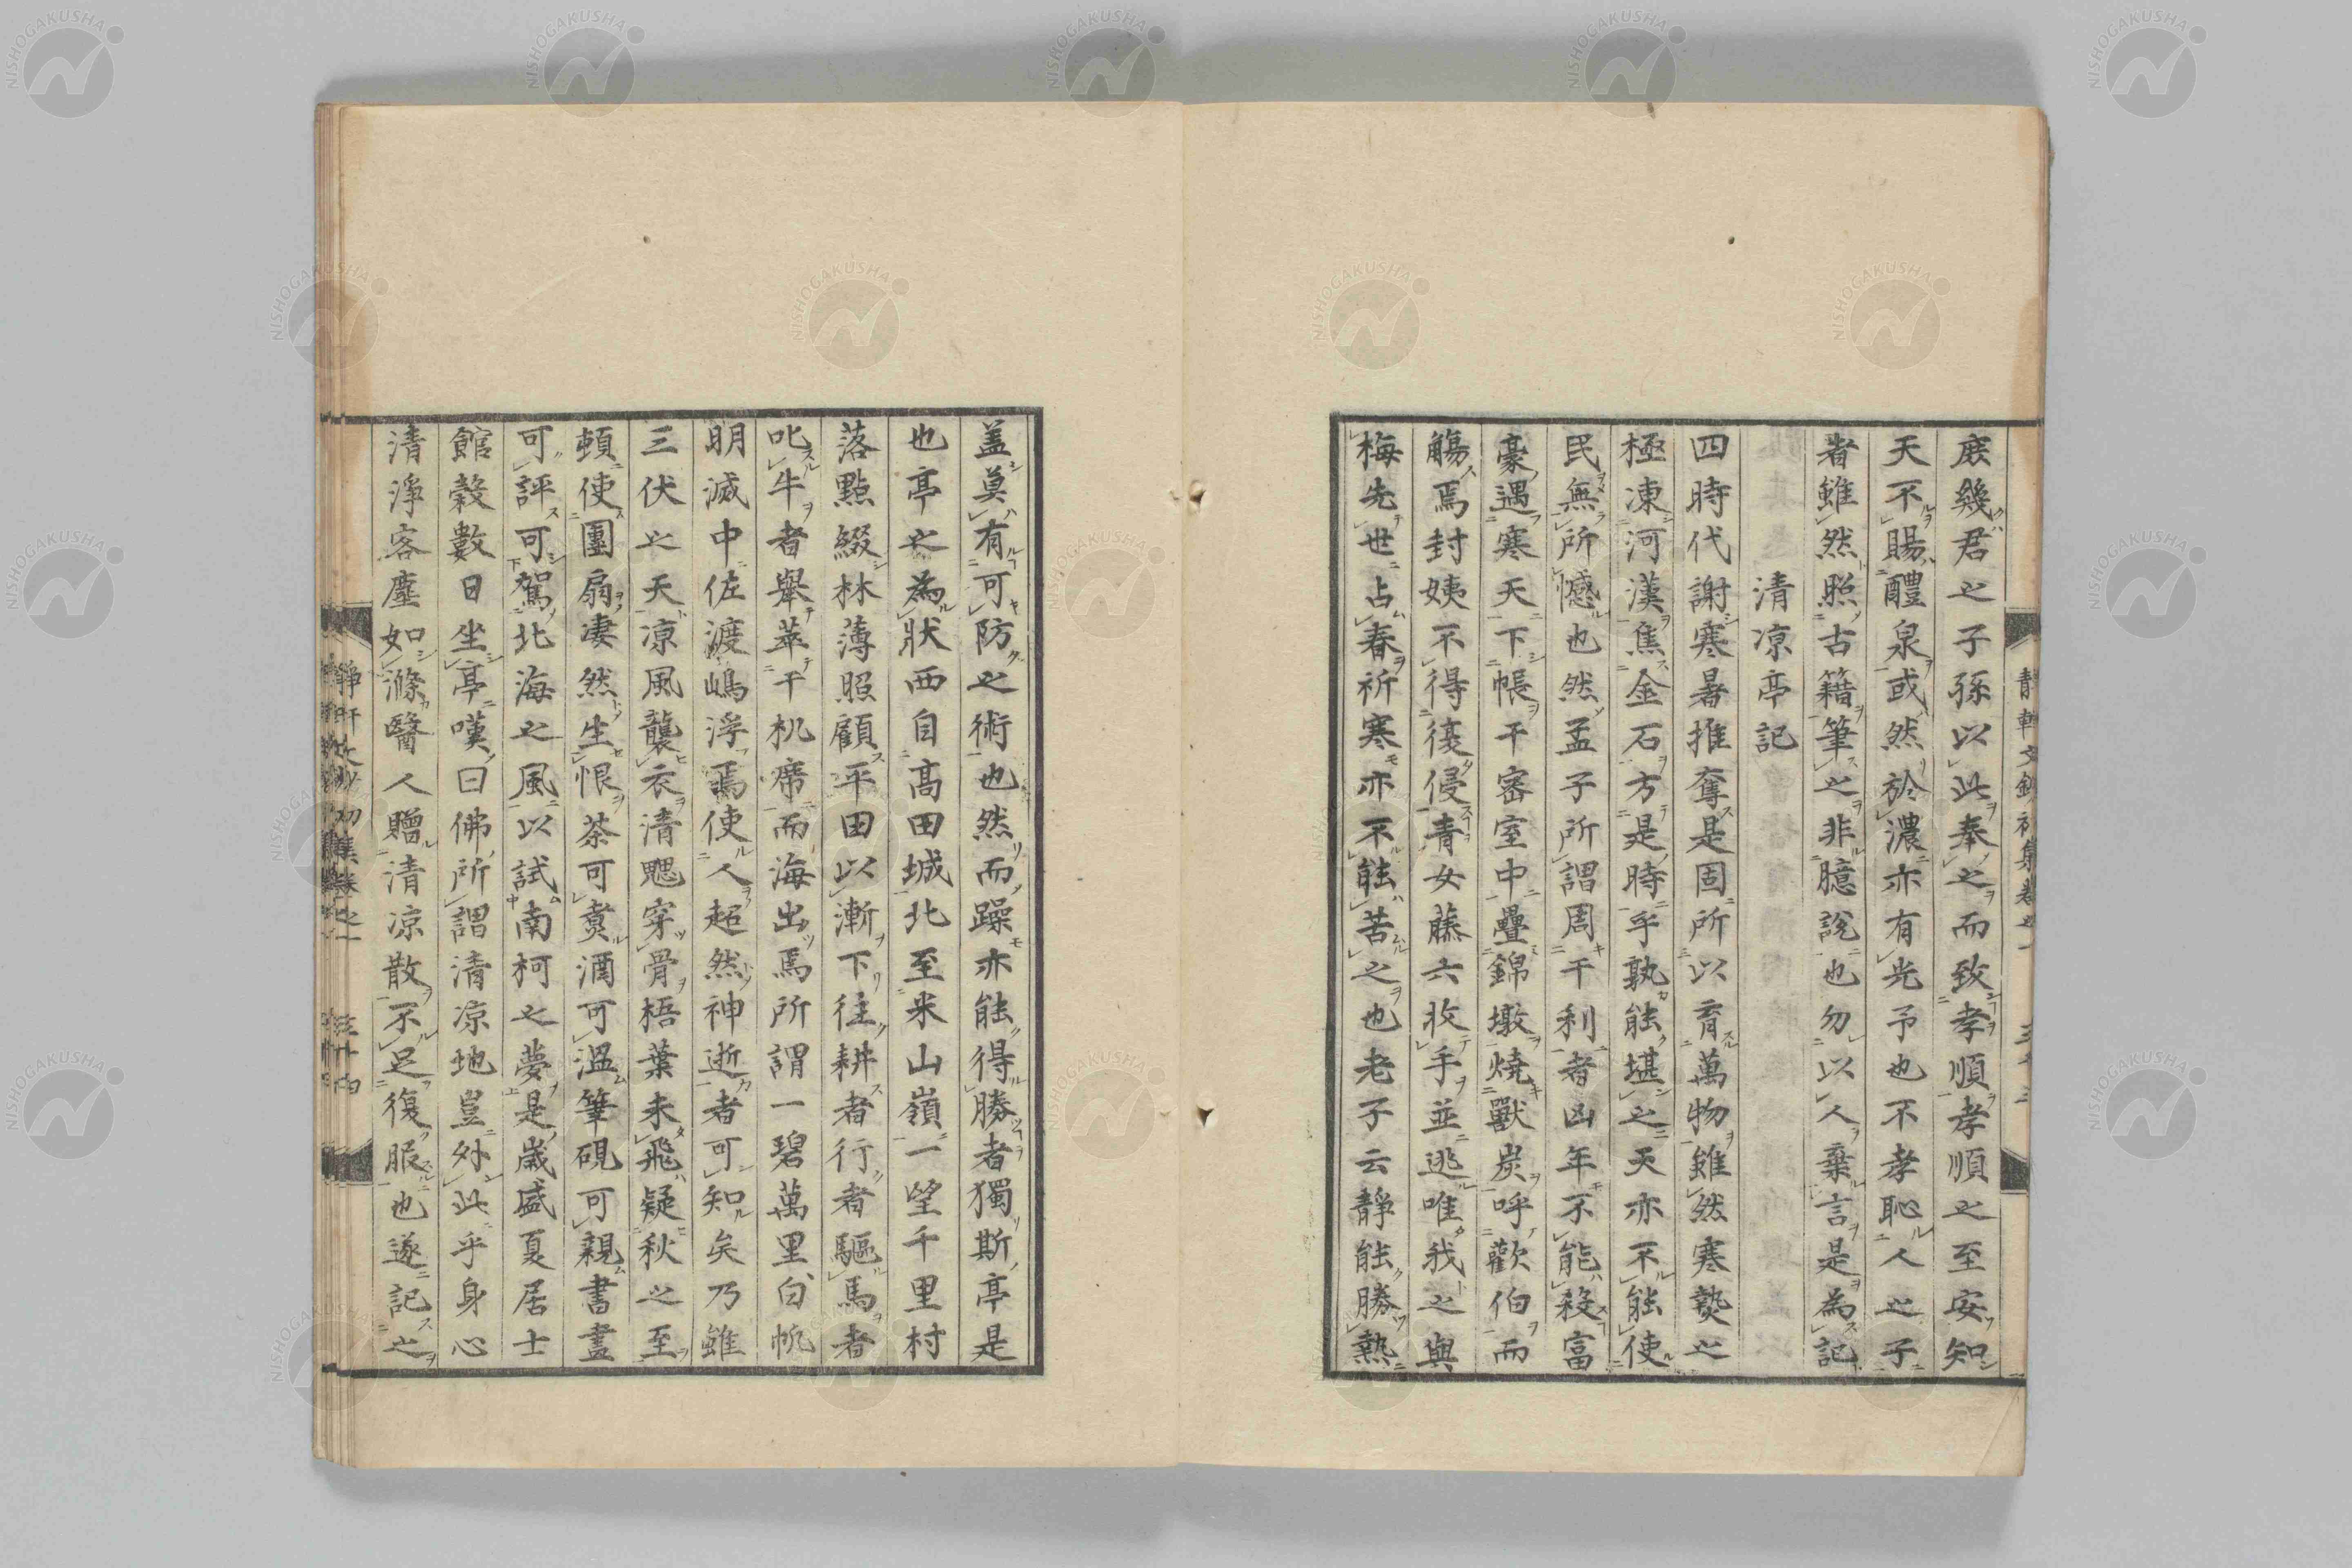 庶幾君之子孫以此奉之而致孝順孝順之至安知
天不賜醴泉或然於濃亦有光予也不孝恥人之子
者雖然照古籍筆之非臆說也勿以人棄言是為記
清涼亭記
四時代謝寒暑推奪是固所以育萬物雖然寒熱之
極凍河漢焦金石方是時乎孰能堪之天亦不能使
民無所憾也然孟子所謂周干利者凶年不能殺富
豪遇寒天下帳干密室中疊錦墩燒獸炭呼歡伯而
觴焉封姨不得復侵青女藤六收手並逃唯我之與
梅先世占春祈寒亦不能苦之也老子云靜能勝熱
蓋莫有可防之術也然而躁亦能得勝者獨斯亭是
也亭之為狀西自高田城北至米山嶺一望千里村
落點綴林薄照顧平田以漸下往耕者行者驅馬者
叱牛者舉萃干机席而海出焉所謂一碧萬里白帆
明滅中佐渡嶋浮焉使人超然神逝者可知矣乃雖
三伏之天涼風襲衣清颸穿骨梧葉未飛疑秋之至
頓使團扇凄然生恨茶可煑酒可溫筆硯可親書畫
可評可駕北海之風以試南柯之夢是歲盛夏居士
館穀數日坐亭嘆曰佛所謂清涼地豈外此乎身心
清淨客塵如滌醫人贈清涼散不足復服也遂記之
靜軒文鈔初集卷之一